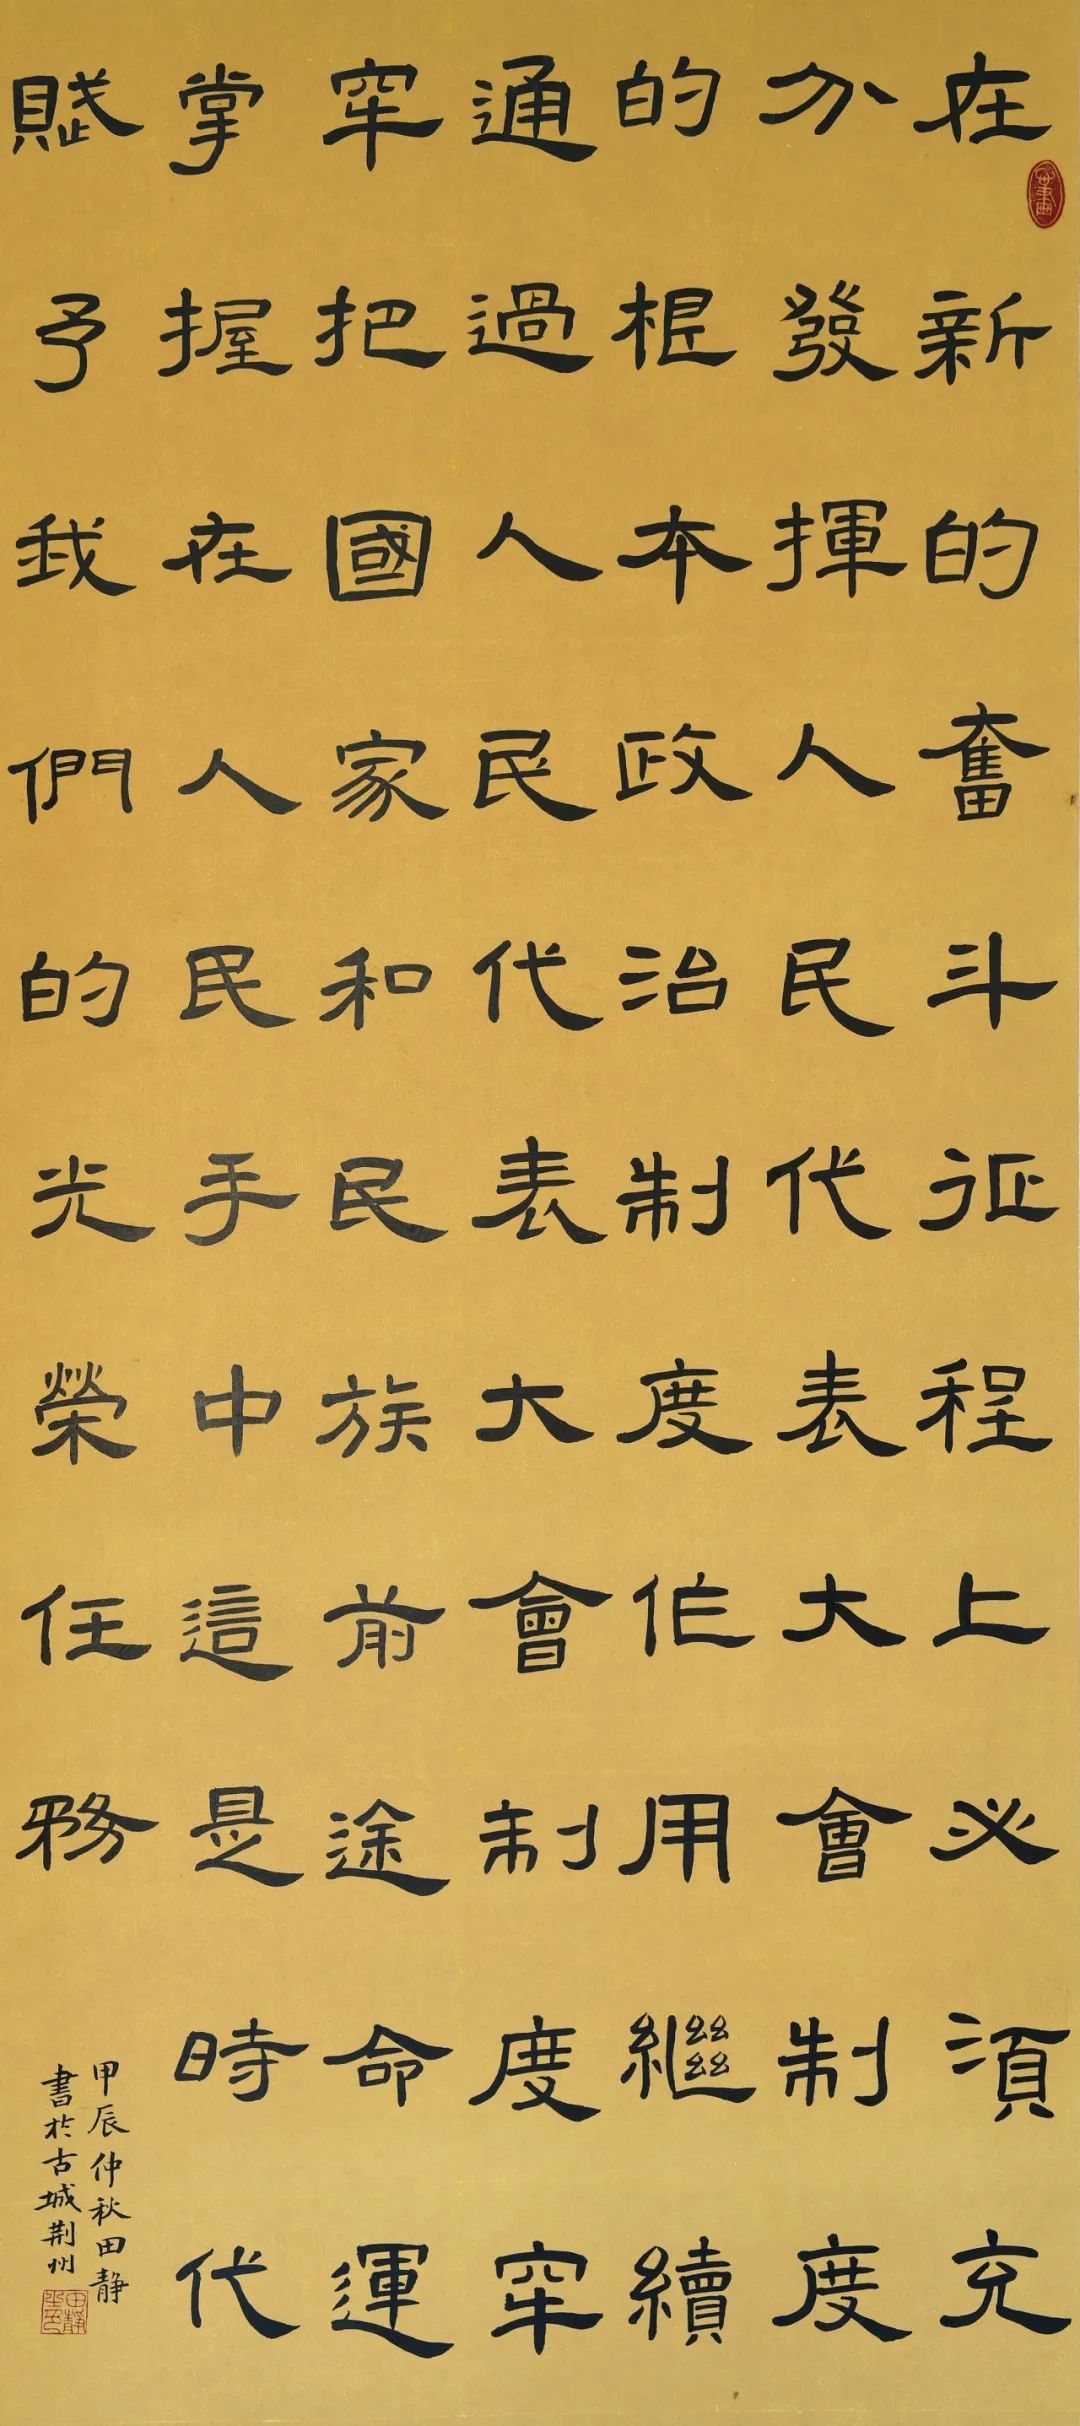 在新的奮斗征程上必須充
分發揮人民代表大會制度
的根本政治制度作用繼續
通過人民代表大會制度牢
牢把國家和民族前途命運
掌握在人民手中這是時代
賦予我們的光榮任務
甲辰仲秋田静
書於古城荆州
田靜之印